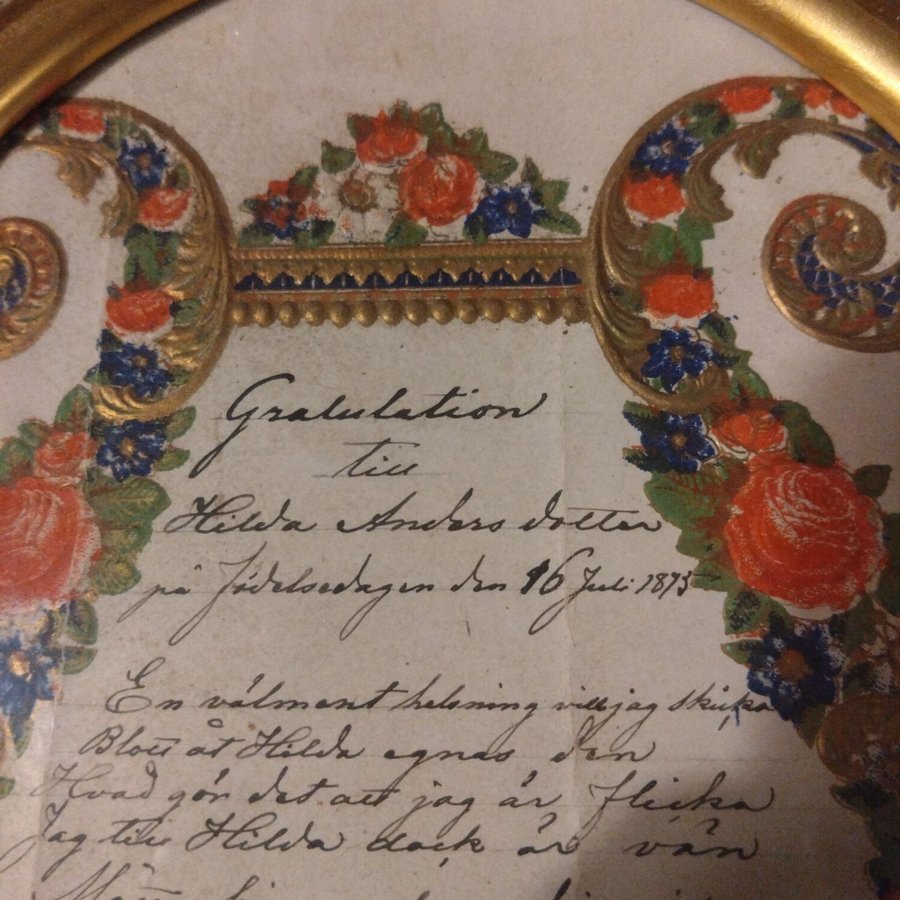 Gratulation
till
Hilda Anders dotter
på Födelsedagen den 16 Juli 1875
En välment helsning vill jag skicka
Blott åt Hilda egnas den
Hvad gör det att jag är flicka
Jag till Hilda dock är vän